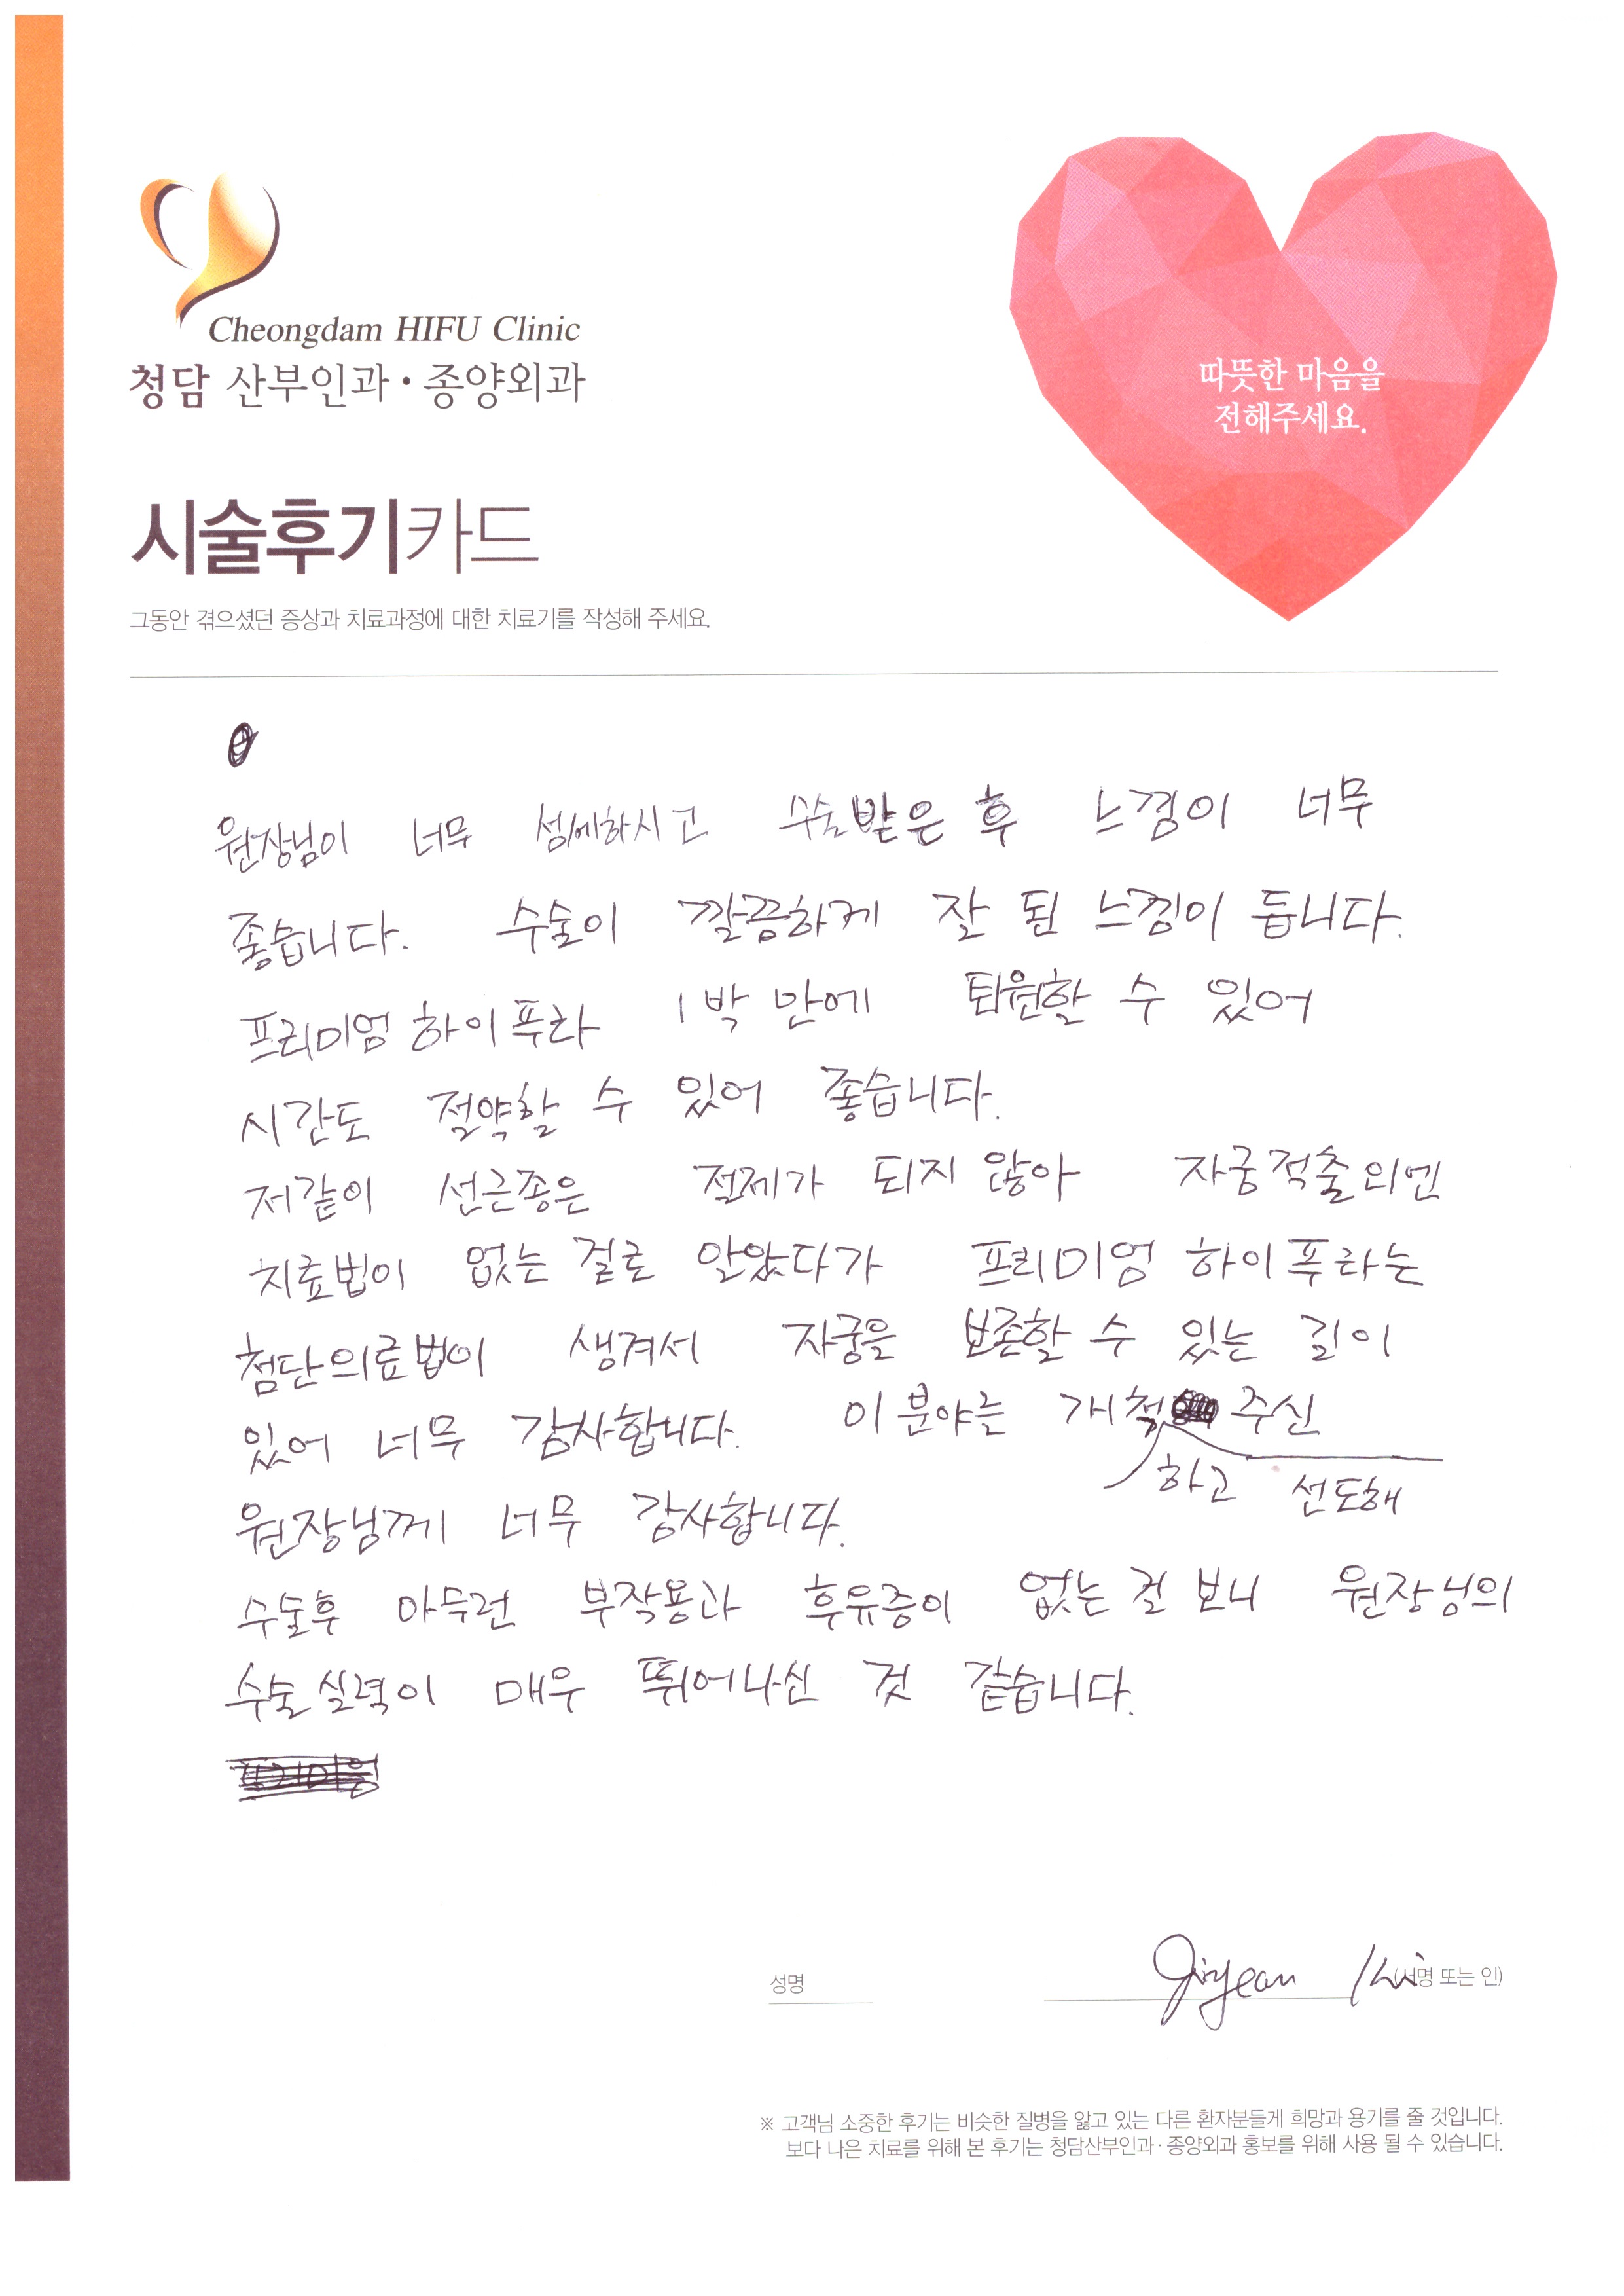 Cheongdam HIFU Clinic
청담 산부인과·종양외과
따뜻한 마음을
전해주세요.
시술후기카드
그동안 겪으셨던 증상과 치료과정에 대한 치료기를 작성해 주세요.
원장님이 너무 섬세하시고 수술받은 후 느낌이 너무
좋습니다. 수술이 깔끔하게 잘 된 느낌이 듭니다.
프리미엄 하이푸라 1박 만에 퇴원할 수 있어
시간도 절약할 수 있어 좋습니다.
저같이 선근종은 절제가 되지 않아 자궁적출외엔
치료법이 없는 걸로 알았다가 프리미엄 하이푸라는
첨단의료법이 생겨서 자궁을 보존할 수 있는 길이
있어 너무 감사합니다. 이 분야를 개척 주신
하고 선도해
원장님께 너무 감사합니다.
수술후 아무런 부작용과 후유증이 없는 걸 보니 원장님의
수술 실력이 매우 뛰어나신 것 같습니다.
성명 (서명 또는 인)
※ 고객님 소중한 후기는 비슷한 질병을 앓고 있는 다른 환자분들게 희망과 용기를 줄 것입니다.
보다 나은 치료를 위해 본 후기는 청담산부인과·종양외과 홍보를 위해 사용 될 수 있습니다.